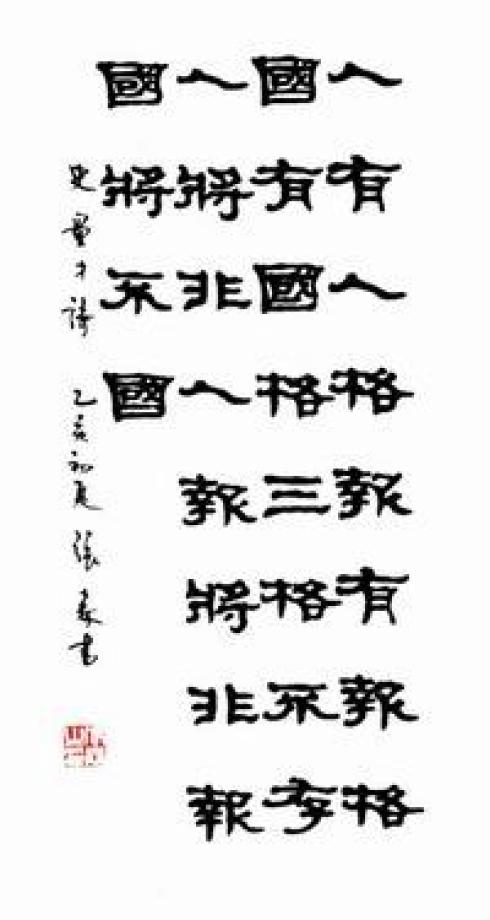 人有人格報有報格
國有國格三格不存
人將非人報將非報
國將不國
史量才詩 乙亥初夏 張森書